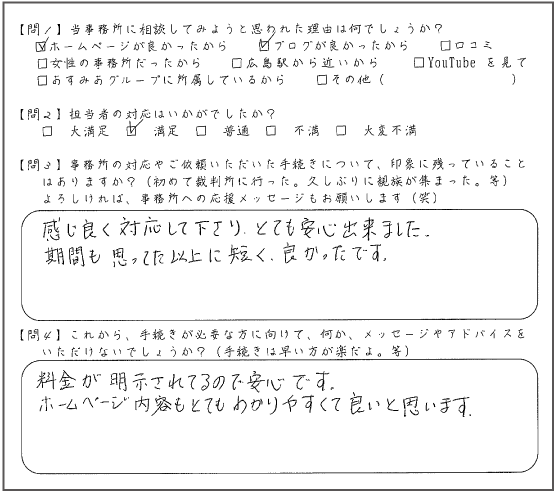 【問1】当事務所に相談してみようと思われた理由は何でしょうか？
☑ホームページが良かったから ☑ブログが良かったから □口コミ
□女性の事務所だったから □広島駅から近いから □YouTubeを見て
□あすみあグループに所属しているから □その他（ ）
【問2】担当者の対応はいかがでしたか？
□ 大満足 ☑ 満足 □ 普通 □ 不満 □ 大変不満
【問3】事務所の対応やご依頼いただいた手続きについて、印象に残っていること
はありますか？（初めて裁判所に行った。久しぶりに親族が集まった。等）
よろしければ、事務所への応援メッセージもお願いします（笑）
感じ良く対応して下さり、とても安心出来ました。
期間も思ってた以上に短く、良かったです。
【問4】これから、手続きが必要な方に向けて、何か、メッセージやアドバイスを
いただけないでしょうか？（手続きは早い方が楽だよ。等）
料金が明示されてるので安心です。
ホームページ内容もとてもわかりやすくて良いと思います。